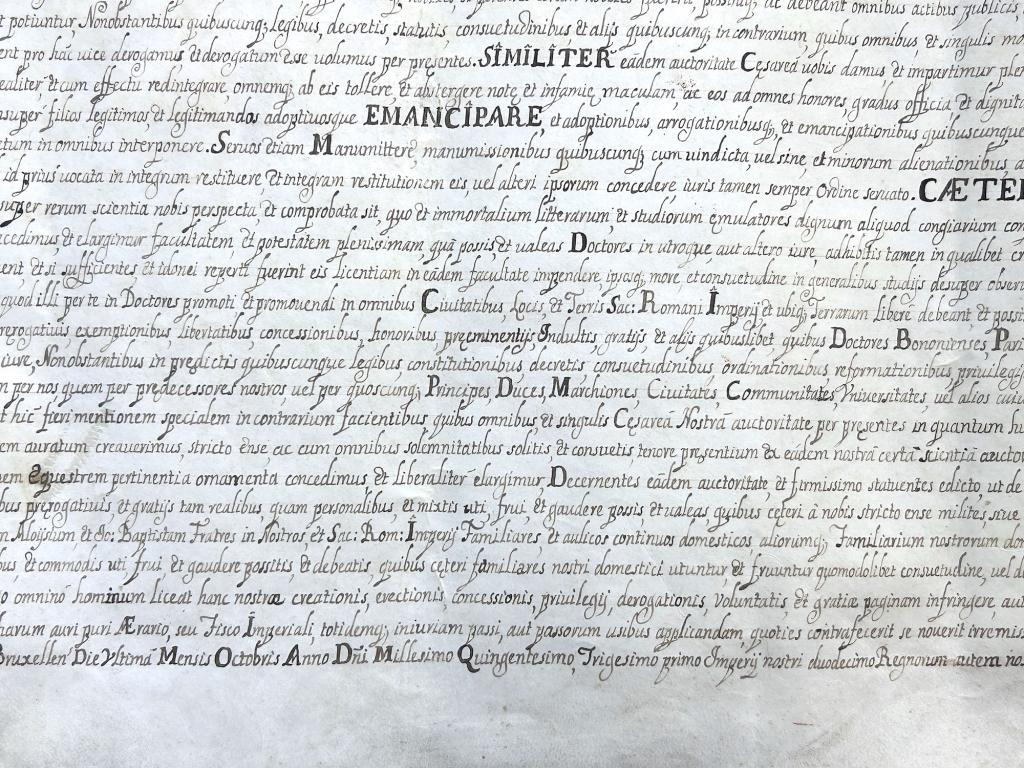 potiuntur, Nonobstantibus quibuscunq; legibus, decretis, statutis, consuetudinibus et alijs quibuscunq; in contrarium, quibus omnibus, et singulis
pro hac vice derogamus, et derogatum esse volumus per presentes. SIMILITER eādem auctoritate Cęsareā vobis damus et impartimur
realiter et cum effectu redintegrare, omnemq; ab eis tollere, et abstergere notę et infamię maculam, ac eos ad omnes honores, gradus officia et
insuper filios legitimos, et legitimandos adoptivosque EMANCIPARE, et adoptionibus, arrogationibusq; et emancipationibus quibuscunque
in omnibus interponere. Seruos etiam Manumittere, manumissionibus quibuscunq; cum vindicta, vel sine, et minorum alienationibus,
id prius vocata in integrum restituere, et integram restitutionem eis, vel alteri ipsorum concedere iuris tamen semper ordine seruato. CÆTE
super rerum scientia nobis perspecta, et comprobata sit, quo et immortalium litterarum, et studiorum ęmulatores dignum aliquod congiarium
concedimus, et elargimur facultatem, et potestatem plenissimam, quā possis, et valeas Doctores in utroque aut altero iure, adhibitis tamen in qualibet
et si sufficientes et idonei reperti fuerint eis licentiam in eādem facultate impendere, ipsosq; more, et consuetudine in generalibus studijs desuper
quod illi per te in Doctores promoti, et promovendi in omnibus Ciuitatibus, Locis, et Terris Sac: Romani Imperij et ubiq; Terrarum liberè debeant et
prerogatiuis exemptionibus, libertatibus, concessionibus, honoribus, preeminentijs, Indultis, gratijs, et alijs quibuslibet, quibus Doctores Bononienses,
iure, Nonobstantibus in prędictis quibuscunque legibus constitutionibus, decretis consuetudinibus, ordinationibus, reformationibus, privilegijs
per nos quam per prędecessores nostros, vel per quoscunq; Principes, Duces, Marchiones, Ciuitates, Communitates, Vniuersitates, vel alios
hic fieri mentionem specialem in contrarium facientibus quibus omnibus et singulis Cęsareā Nostrā auctoritate per pręsentes in quantum
auratum creauerimus, stricto ense ac cum omnibus solemnitatibus solitis, et consuetis, tenore presentium et eadem nostrā certā scientiā
equestrem pertinentia ornamenta concedimus, et liberaliter elargimur Decernentes eādem auctoritate, et firmissimo statuentes edicto, ut de
prerogatiuis, et gratijs tam realibus, quam personalibus, et mixtis uti, frui, et gaudere possis, et valeas quibus cęteri ā nobis stricto ense milites, siue
Aloysium et Io: Baptistam Fratres in Nostros, et Sac: Rom: Imperij Familiares et aulicos continuos domesticos, aliorumq; Familiarium nostrorum
et commodis uti frui et gaudere possitis, et debeatis, quibus cęteri familiares nostri domestici utuntur, et fruuntur quomodolibet consuetudine, vel
omninò hominum liceat hanc nostræ creationis, erectionis, concessionis, privilegij, derogationis, voluntatis, et gratiæ paginam infringere, aut
auri puri Ærario, seu Fisco Imperiali, totidemq; iniuriam passi, aut passorum usibus applicandam, quoties contrafecerit se nouerit
Bruxellen' Die Vltima Mensis Octobris Anno Dni Millesimo Quingentesimo, Trigesimo primo Imperij nostri duodecimo Regnorum autem